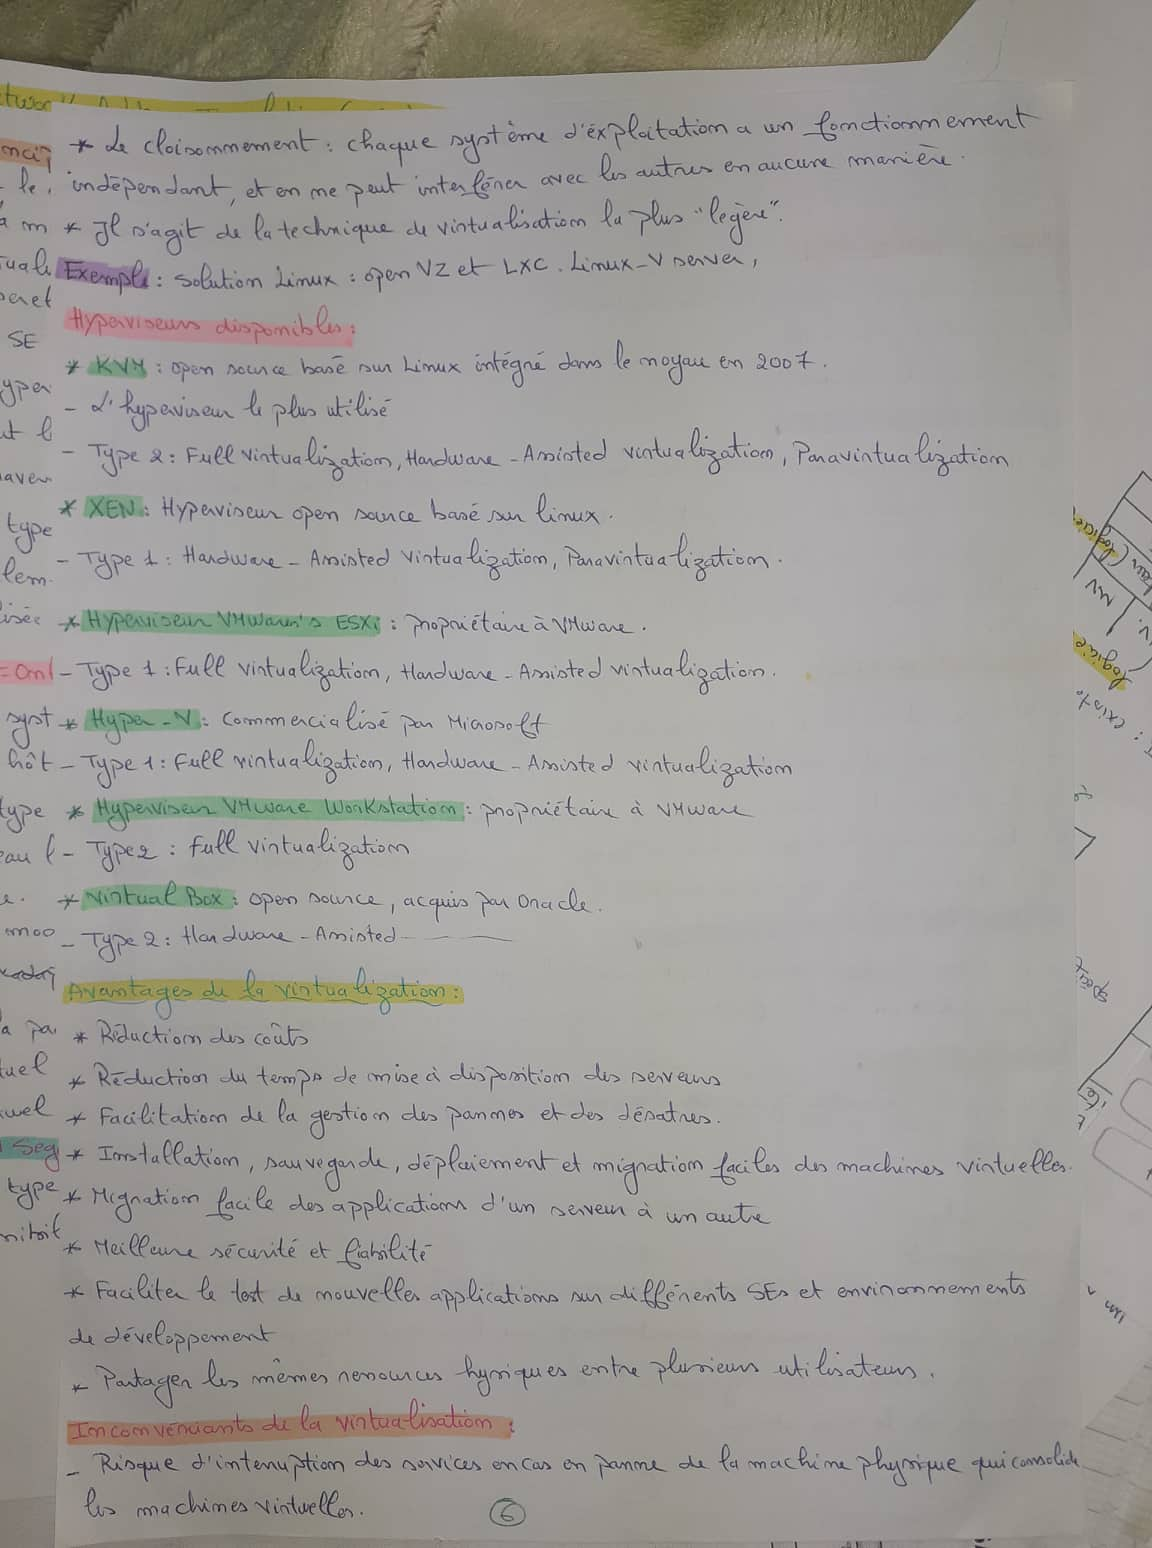 * Le cloisonnement : chaque système d'éxploitation a un fonctionnement
indépendant, et on ne peut interférer avec les autres en aucune manière.
* Il s'agit de la technique de virtualisation la plus "legère".
Exemple : solution Linux : open VZ et LXC. Linux-V server,
Hyperviseurs disponibles :
* KVM : open source basé sur Linux intégré dans le noyau en 2007.
- L'hyperviseur le plus utilisé
- Type 2 : Full virtualization, Hardware - Assisted virtualization, Paravirtualization
* XEN : Hyperviseur open source basé sur linux.
- Type 1 : Hardware - Assisted virtualization, Paravirtualization.
* Hyperviseur VMware's ESXi : propriétaire à VMware.
- Type 1 : Full virtualization, Hardware - Assisted virtualization.
* Hyper-V : Commercialisé par Microsoft
- Type 1 : Full virtualization, Hardware - Assisted virtualization
* Hyperviseur VMware Workstation : propriétaire à VMware
- Type 2 : Full virtualization
* Virtual Box : open source, acquis par Oracle.
- Type 2 : Hardware - Assisted
Avantages de la virtualization :
* Réduction des coûts
* Réduction du temps de mise à disposition des serveurs
* Facilitation de la gestion des pannes et des désatres.
* Installation, sauvegarde, déploiement et migration faciles des machines virtuelles.
* Migration facile des applications d'un serveur à un autre
* Meilleure sécurité et fiabilité
* Faciliter le test de nouvelles applications sur différents SEs et environnements
de développement
* Partager les mêmes ressources hysiques entre plusieurs utilisateurs.
Inconvénients de la virtualisation :
- Risque d'interruption des services en cas en panne de la machine physique qui consolide
les machines virtuelles.
6